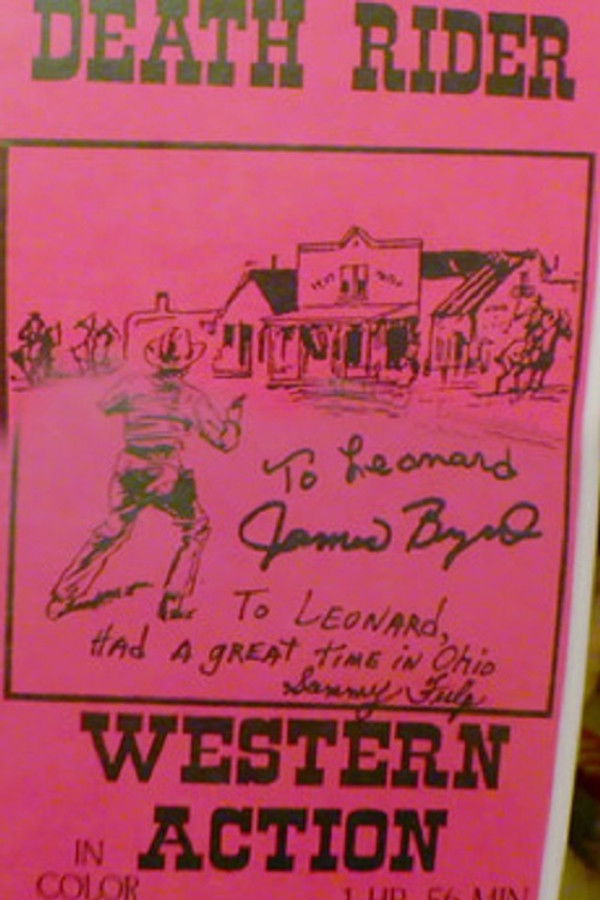 DEATH RIDER
To Leonard
James Byrd
To LEONARD,
HAd A gREAT TIME in OHio
Sammy Fulp
WESTERN
ACTION
IN
COLOR
1 HR. 56 MIN